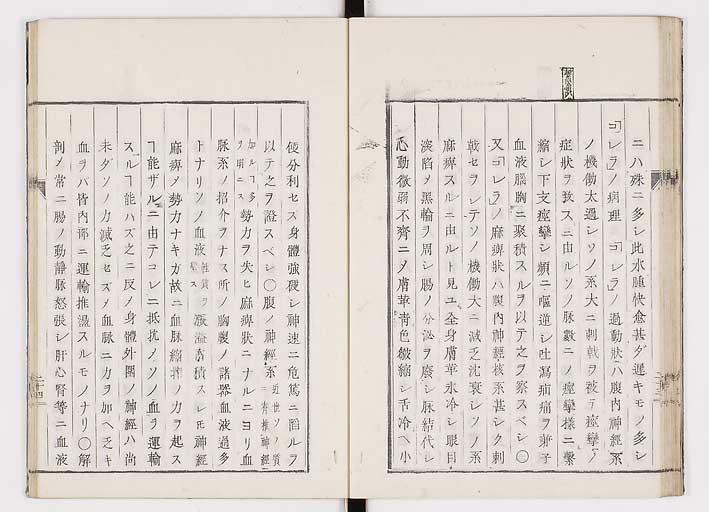 ニハ殊ニ多シ此水腫快愈甚ダ遅キモノ多シ
「コレラ」ノ病理 「コレラ」ノ過動状ハ腹内神経系
ノ機働太過シソノ系大ニ刺戟ヲ被テ痙攣ノ
症状ヲ発スニ由ルソノ脉数ニノ痙攣様ニ繋
縮シ下支痙攣シ頻ニ嘔逆シ吐瀉疝痛ヲ兼子
血液脳胸ニ聚積スルヲ以テ之ヲ察スベシ〇
又「コレラ」ノ麻痺状ハ腹内神経核系甚シク刺
戟セラレテソノ機働大ニ減乏沈衰シソノ系
麻痺スルニ由ルト見ユ全身膚革氷冷シ眼目
深陷メ黒輪ヲ周シ腸ノ分泌ヲ廃シ脉結代シ
心動微弱不齊ニメ膚革青色皺縮シ舌冷ヘ小
便分利セズ身體強硬シ神速ニ危篤ニ陷ルヲ
以テ之ヲ證スベシ〇腹ノ神経系
勢力ヲ失ヒ麻痺状ニナルニヨリ血
脉系ノ招介ヲナス所ノ胸腹ノ諸器血液過多
トナリソノ血液 蓄積スレモ神経
麻痺メ勢力ナキガ故ニ血脉縮搾ノ力ヲ起ス
ヿ能ザルニ由テコレニ抵抗メソノ血ヲ運輸
スルヿ能ハズ之ニ反メ身體外圍ノ神経ハ尚
未ダソノ力減乏セズメ血脉ニ力ヲ加ヘ乏キ
血ヲバ皆内部ニ運輸推盪スルモノナリ〇解
剖メ常ニ腸ノ動静脉怒張シ肝心腎等ニ血液